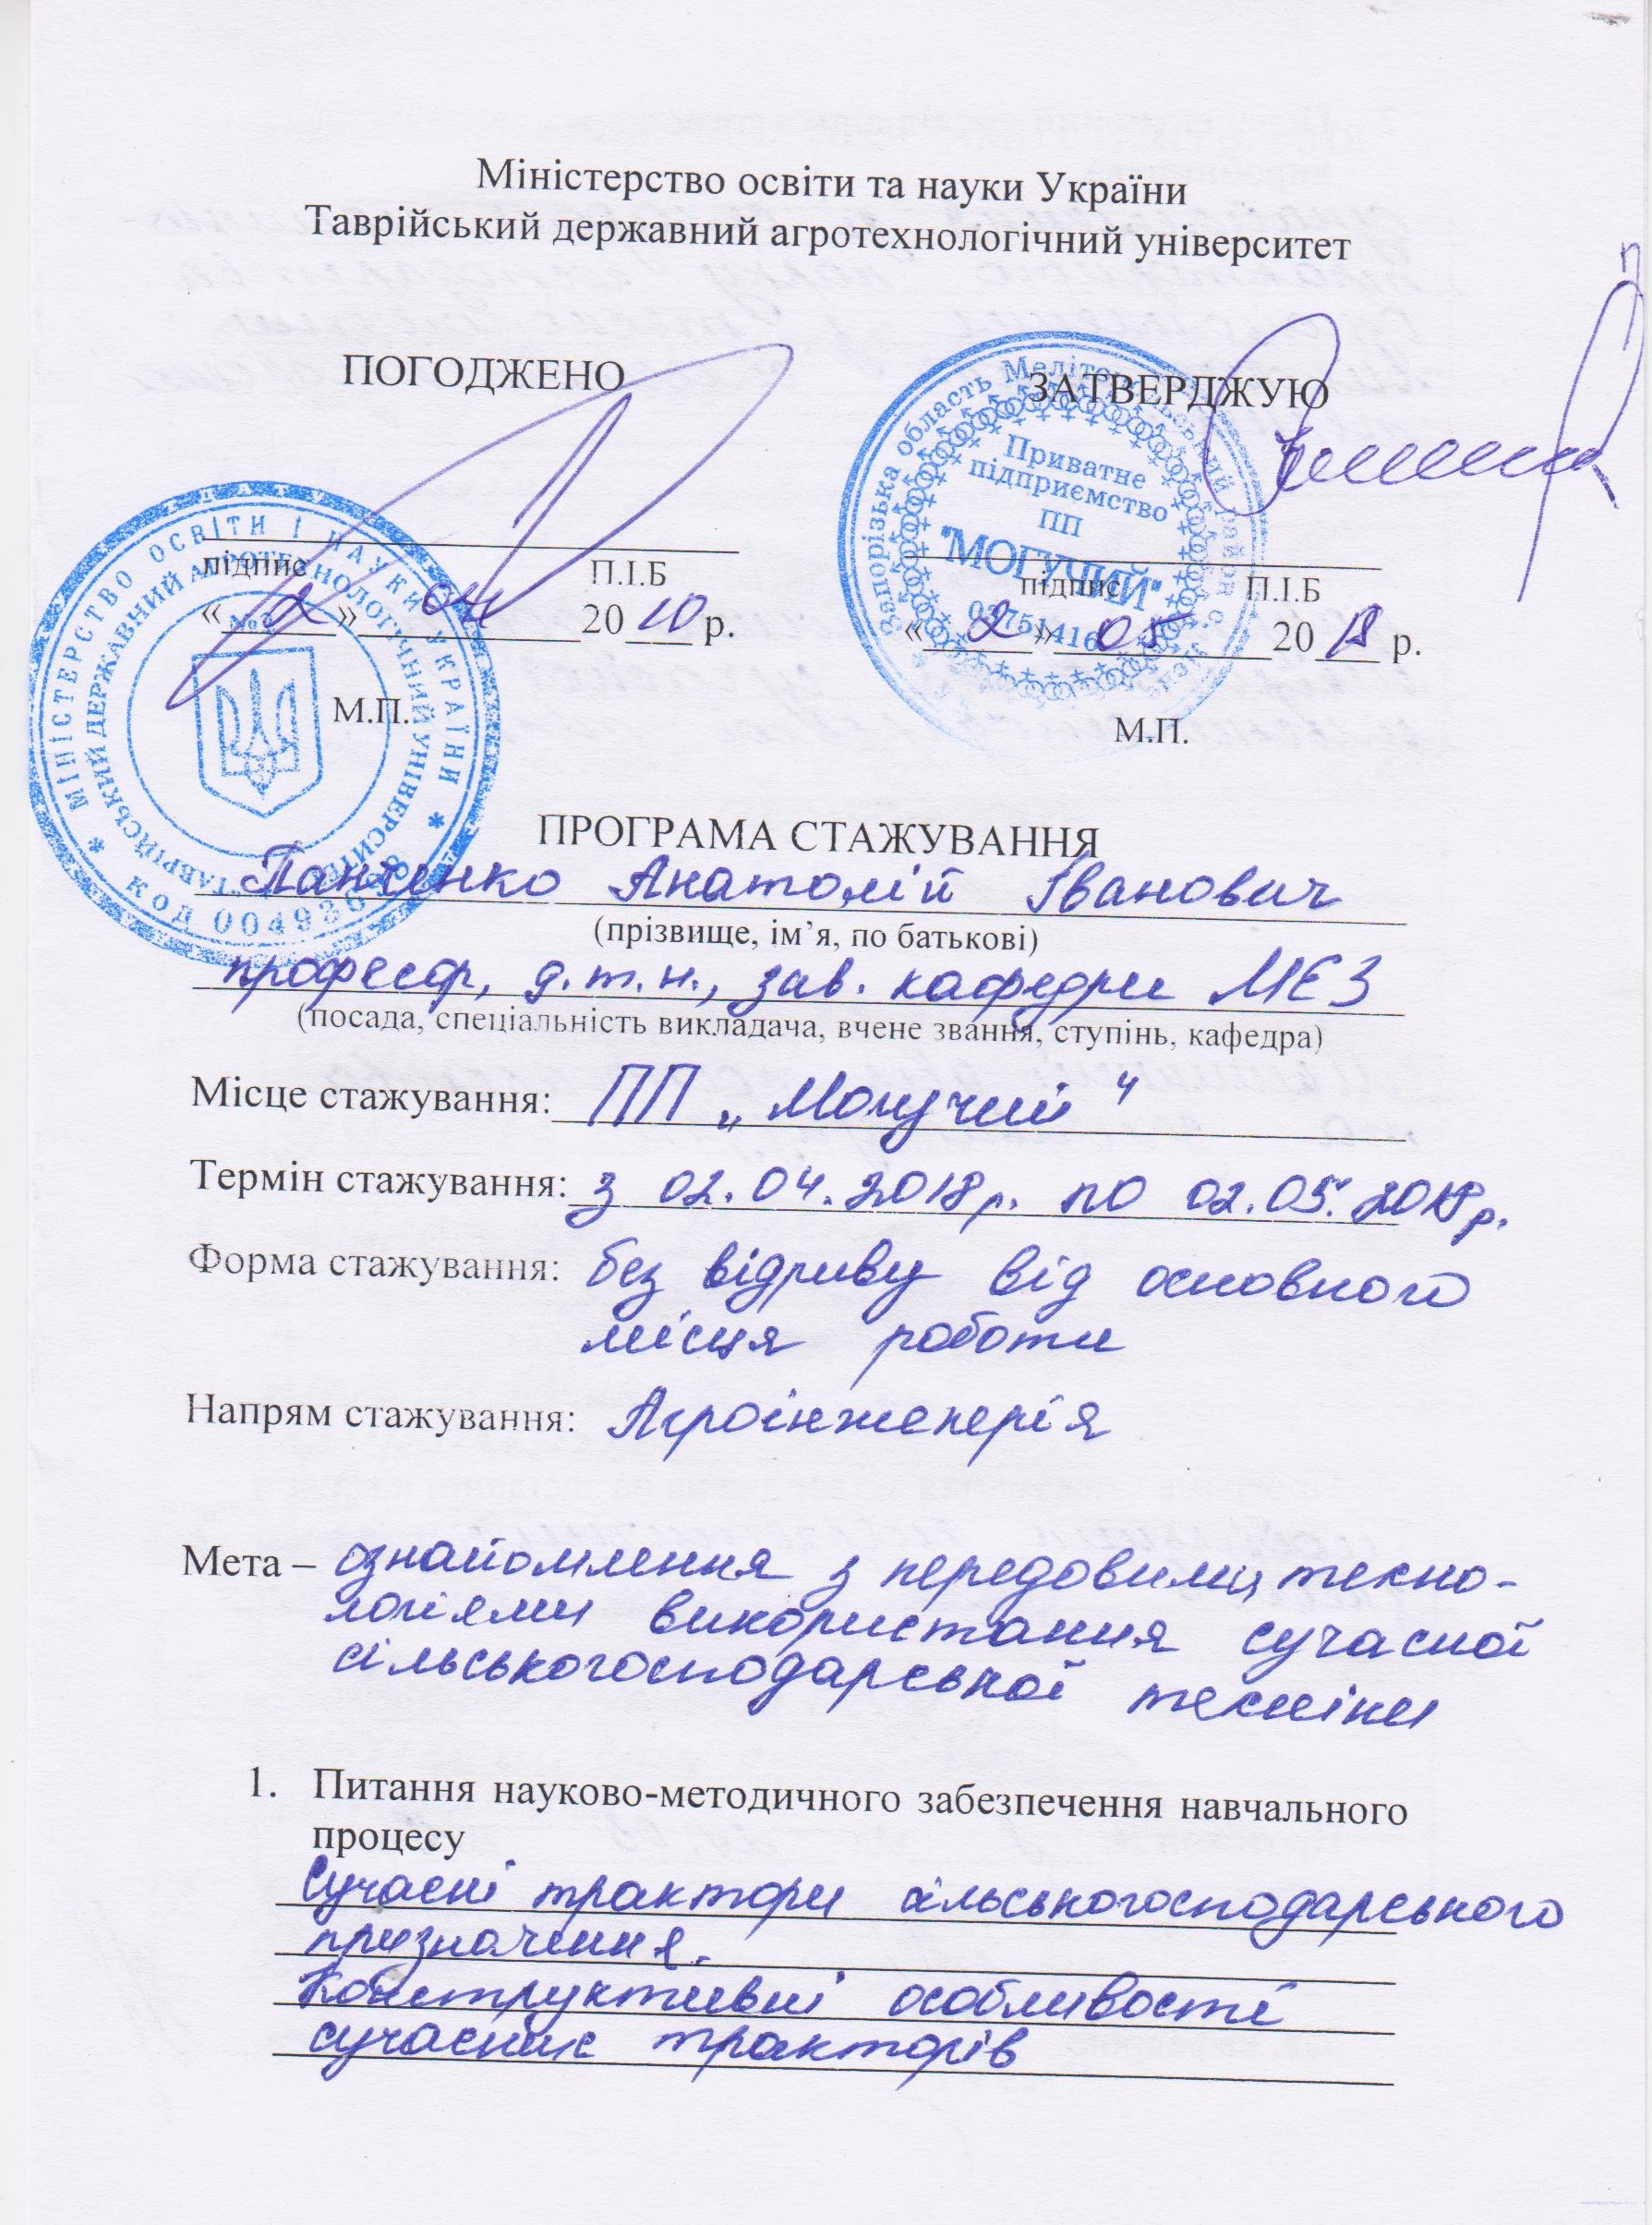 Міністерство освіти та науки України
Таврійський державний агротехнологічний університет
ПОГОДЖЕНО
ЗАТВЕРДЖУЮ
підпис П.І.Б
«2» 04 2018 р.
М.П.
підпис П.І.Б
«2» 05 2018 р.
М.П.
МІНІСТЕРСТВО ОСВІТИ І НАУКИ УКРАЇНИ
ТАВРІЙСЬКИЙ ДЕРЖАВНИЙ АГРОТЕХНОЛОГІЧНИЙ УНІВЕРСИТЕТ
КОД
Запорізька область Мелітопольський район с.
Приватне
підприємство
ПП
"МОГУЧИЙ"
ПРОГРАМА СТАЖУВАННЯ
Панченко Анатолій Іванович
(прізвище, ім’я, по батькові)
професор, д.т.н., зав. кафедри МЕЗ
(посада, спеціальність викладача, вчене звання, ступінь, кафедра)
Місце стажування: ПП „Могучий"
Термін стажування: з 02.04.2018р. по 02.05.2018р.
Форма стажування: без відриву від основного
місця роботи
Напрям стажування: Агроінженерія
Мета – ознайомлення з передовими техно-
логіями використання сучасної
сільськогосподарської техніки
1. Питання науково-методичного забезпечення навчального
процесу
Сучасні трактори сільськогосподарського
призначення.
Конструктивні особливості
сучасних тракторів